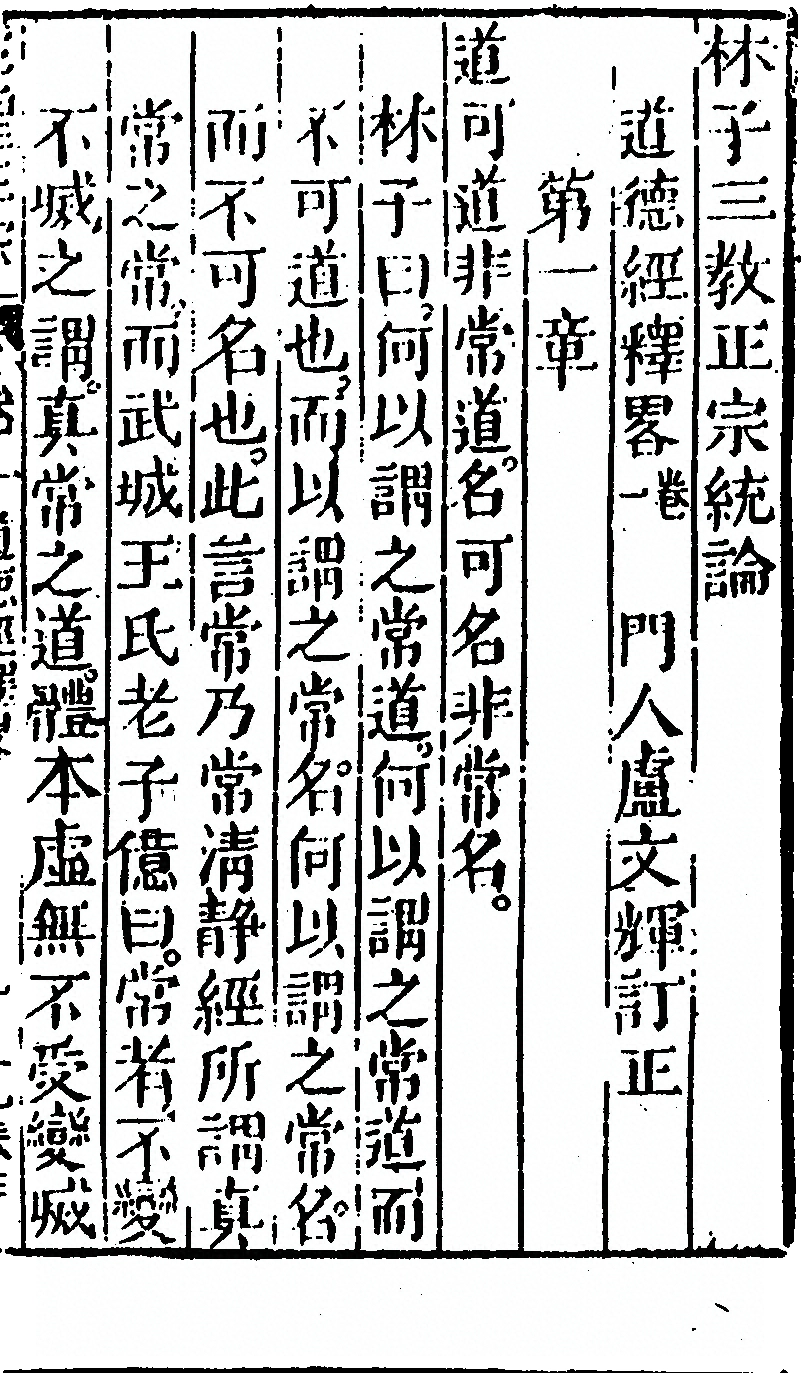 林子三教正宗統論
道德經釋畧卷一 門人盧文輝訂正
第一章
道可道非常道。名可名非常名。
林子曰。何以謂之常道。何以謂之常道而
不可道也。而以謂之常名。何以謂之常名。
而不可名也。此言常乃常清靜經所謂真
常之常。而武城王氏老子億曰。常者不變
不㓕之謂。真常之道。體本虛無不受變㓕